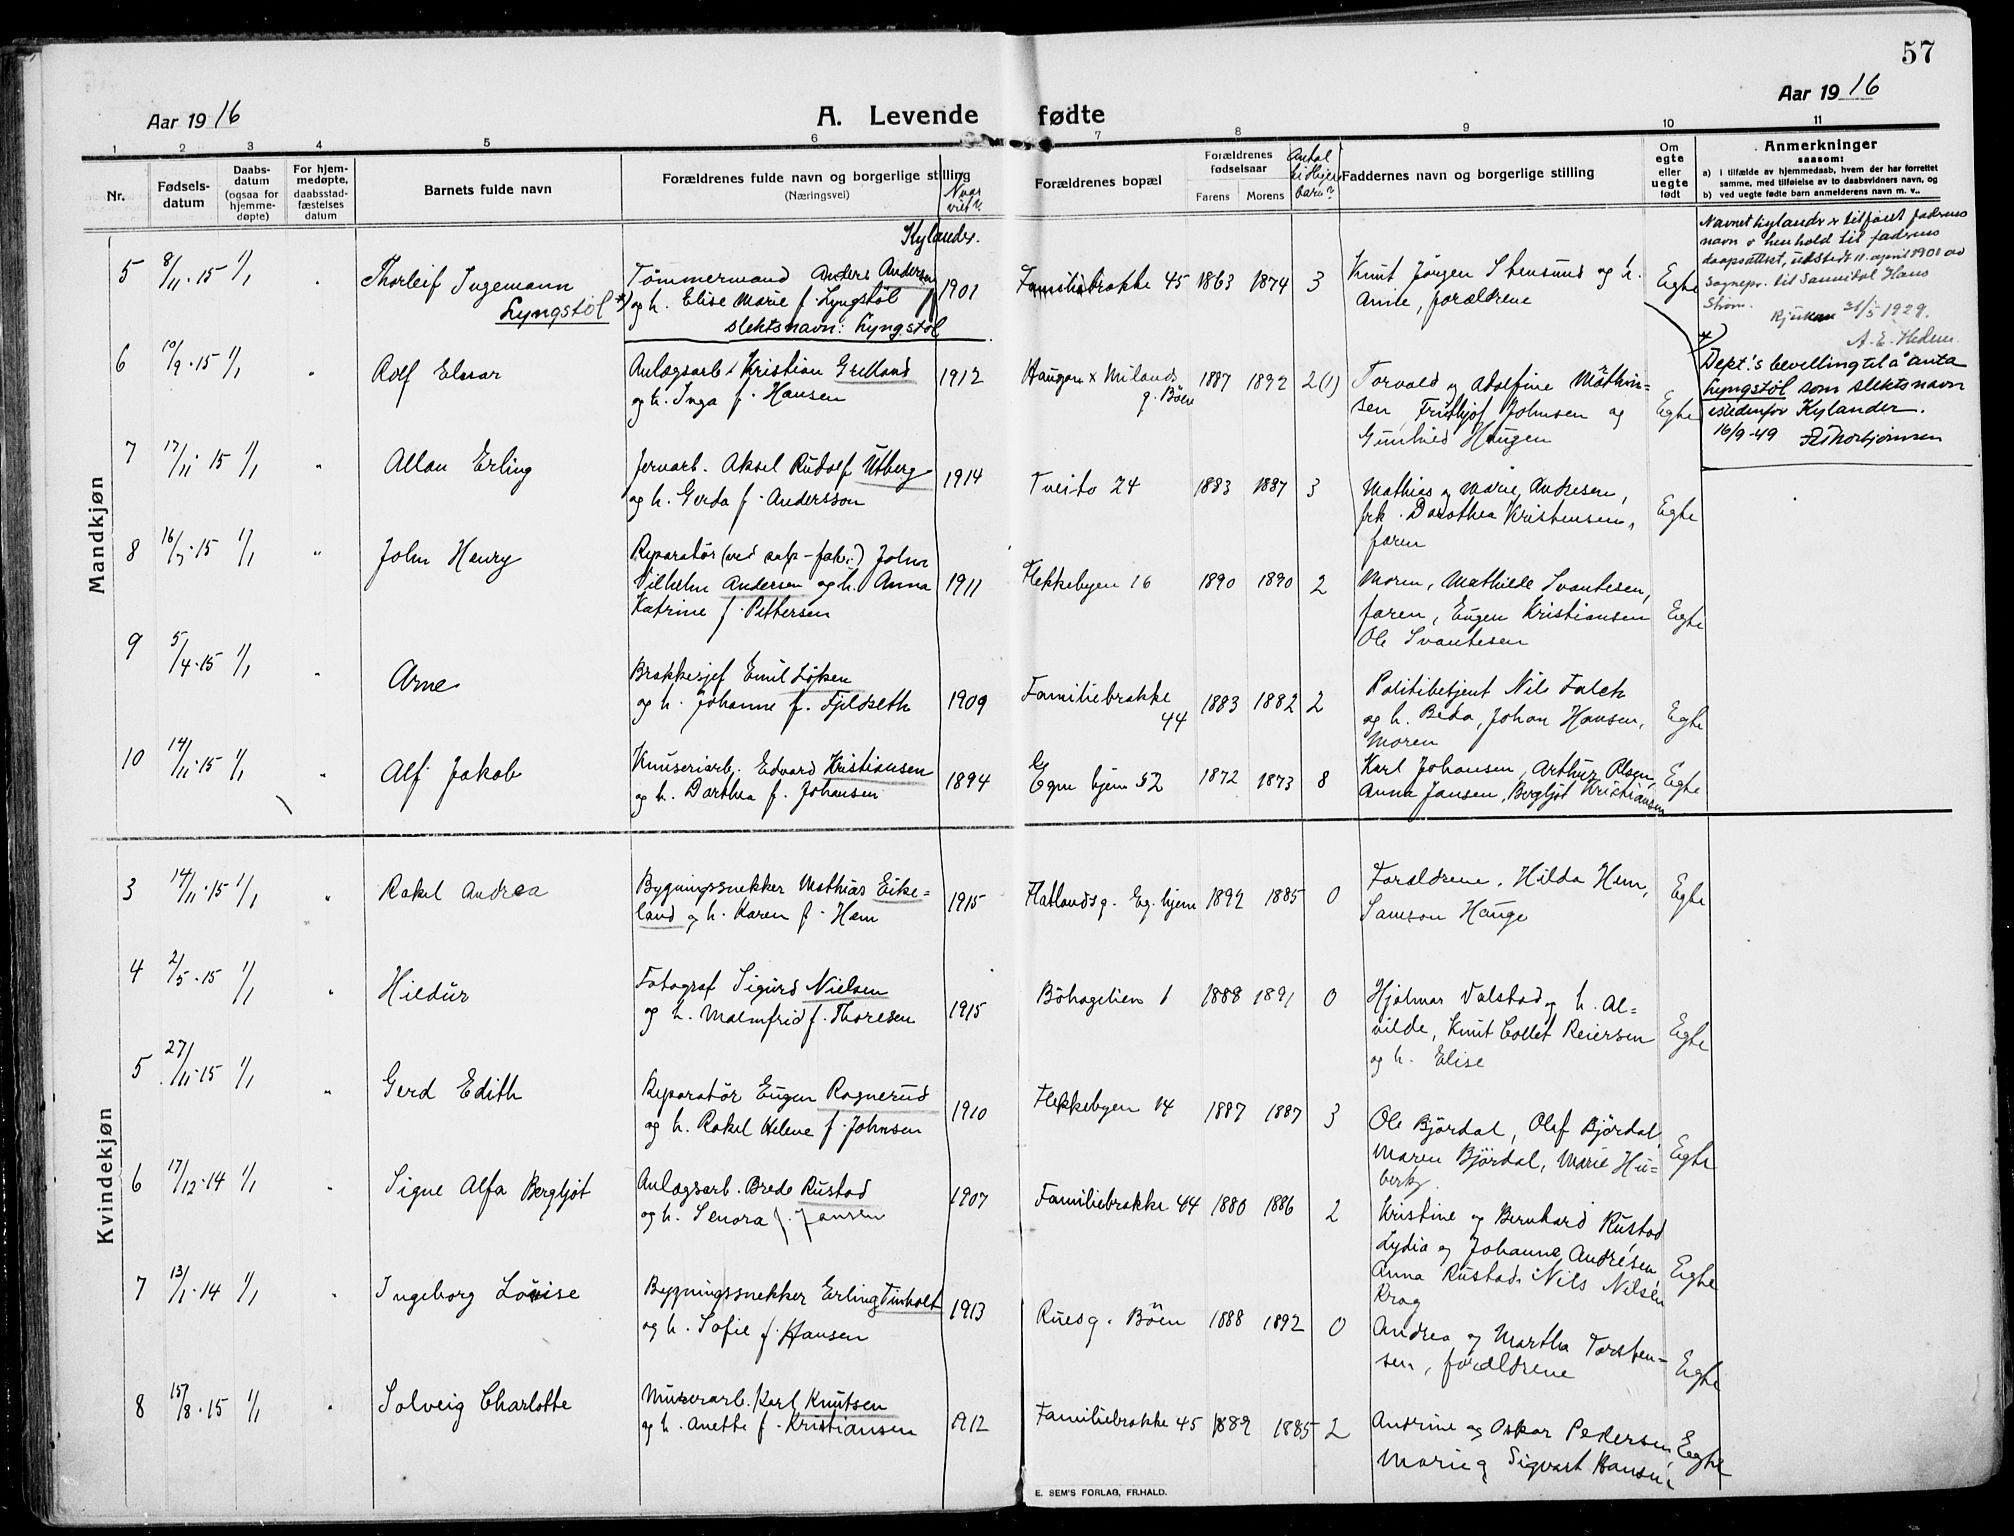 57
Aar 1916
A. Levende fødte
Aar 1916
1 2 3 4 5 6 7 8 9 10 11
Nr.
Fødsels-
datum
Daabs-
datum
(ogsaa for
hjemme-
døpte)
For hjem-
medøpte,
daabsstad-
fæstelses
datum
Barnets fulde navn
Forældrenes fulde navn og borgerlige stilling
(Næringsvei)
Naar
viet?
Forældrenes bopæl
Forældrenes
fødselsaar
Farens Morens
Antal
tidligere
barn?
Faddernes navn og borgerlige stilling
Om
egte
eller
uegte
født
Anmerkninger
saasom:
a) i tilfælde av hjemmedaab, hvem der har forrettet
samme, med tilføielse av to daabsvidners navn, og
b) ved uegte fødte barn anmelderens navn m. v..
Mandkjøn
Kylander.
5 8/11-15 1/1 " Thorleif Ingemann Tømmermand Anders Andersen 1901 Familiebrakke 45 1863 1874 3 Knut Jørgen Stensund og h. Egte
Lyngstøl *) og h. Elise Marie f. Lyngstøl Anne, forældrene
slektsnavn: Lyngstøl
Navnet Kylander er tilføiet faderens
navn i henhold til faderens
daapsattest, utstedt 11. april 1901 av
sognepr. til Sannidal Hans
Strøm.
Rjukan 31/5 1929.
A. E. Hedem
*)
Dept.'s bevilling til å anta
Lyngstøl som slektsnavn
istedenfor Kylander.
16/9-49 Thorbjørnsen
6 10/9-15 1/1 " Rolf Elnar Anlægsarb. Kristian Grelland 1912 Haugen x Milands 1887 1892 2(1) Torvald og Adolfine Mathin= Egte
og h. Inga f. Hansen g. Böen sen, Fridtjof Johnsen og
Gunhild Haugen
7 17/11-15 1/1 " Allan Erling Jernarb. Aksel Rudolf Utberg 1914 Tveito 24 1883 1887 3 Mathias og Marie Andresen, Egte
og h. Gerda f. Andersson frk. Dorothea Kristensen,
faren
8 16/7-15 1/1 " John Henry Reparatør (ved salp-fabr.) John 1911 Flekkebyen 16 1890 1890 2 Moren, Mathilde Svantesen, Egte
Vilhelm Andersen og h. Anna faren, Eugen Kristiansen
Katrine f. Pettersen Ole Svantesen
9 5/4-15 1/1 " Arne Brakkesjef Emil Løken 1909 Familiebrakke 44 1883 1882 2 Politibetjent Nils Falck Egte
og h. Johanne f. Fjeldseth og h. Beda, Johan Hansen,
Moren
10 14/11-15 1/1 " Alf Jakob Knuseriarb. Edvard Kristiansen 1894 Egne hjem 52 1872 1873 8 Karl Johansen, Arthur Olsen, Egte
og h. Dorthea f. Johansen Anna Jansen, Bergljot Kristiansen
Kvindekjøn
3 14/11-15 1/1 " Rakel Andrea Bygningssnekker Mathias Eike= 1915 Flatlandsg. Eg. hjem 1892 1885 0 Forældrene, Hilda Hem, Egte
land og h. Karen f. Ham Samson Hauge
4 2/5-15 1/1 " Hildur Fotograf Sigurd Nielsen 1915 Böhagelien 1 1888 1891 0 Hjalmar Valstad og h. Al= Egte
og h. Malmfrid f. Thoresen vilde, Knut Collet Reiersen
og h. Elise
5 27/11-15 1/1 " Gerd Edith Reparatør Eugen Rognerud 1910 Flekkebyen 14 1887 1887 3 Ole Björdal, Olaf Björdal Egte
og h. Rakel Helene f. Johnsen Maren Björdal, Marie Hu=
berg
6 17/12-14 1/1 " Signe Alfa Bergljot Anlægsarb. Brede Rustad 1907 Familiebrakke 44 1880 1886 2 Kristine og Bernhard Rustad Egte
og h. Senora f. Jansen Lydia og Johanne Andresen,
Anna Rustad, Nils Nilsen
Krog
7 13/1-14 1/1 " Ingeborg Louise Bygningssnekker Erling Tinholt 1913 Ruesg. Böen 1888 1892 0 Andrea og Martha Torsten= Egte
og h. Sofie f. Hansen sen, forældrene
8 15/8-15 1/1 " Solveig Charlotte Murerarb. Karl Knutsen 1912 Familiebrakke 45 1889 1885 2 Andrine og Oskar Pedersen, Egte
og h. Anette f. Kristiansen Marie og Sigvart Hansen
E. SEM'S FORLAG, FR.HALD.